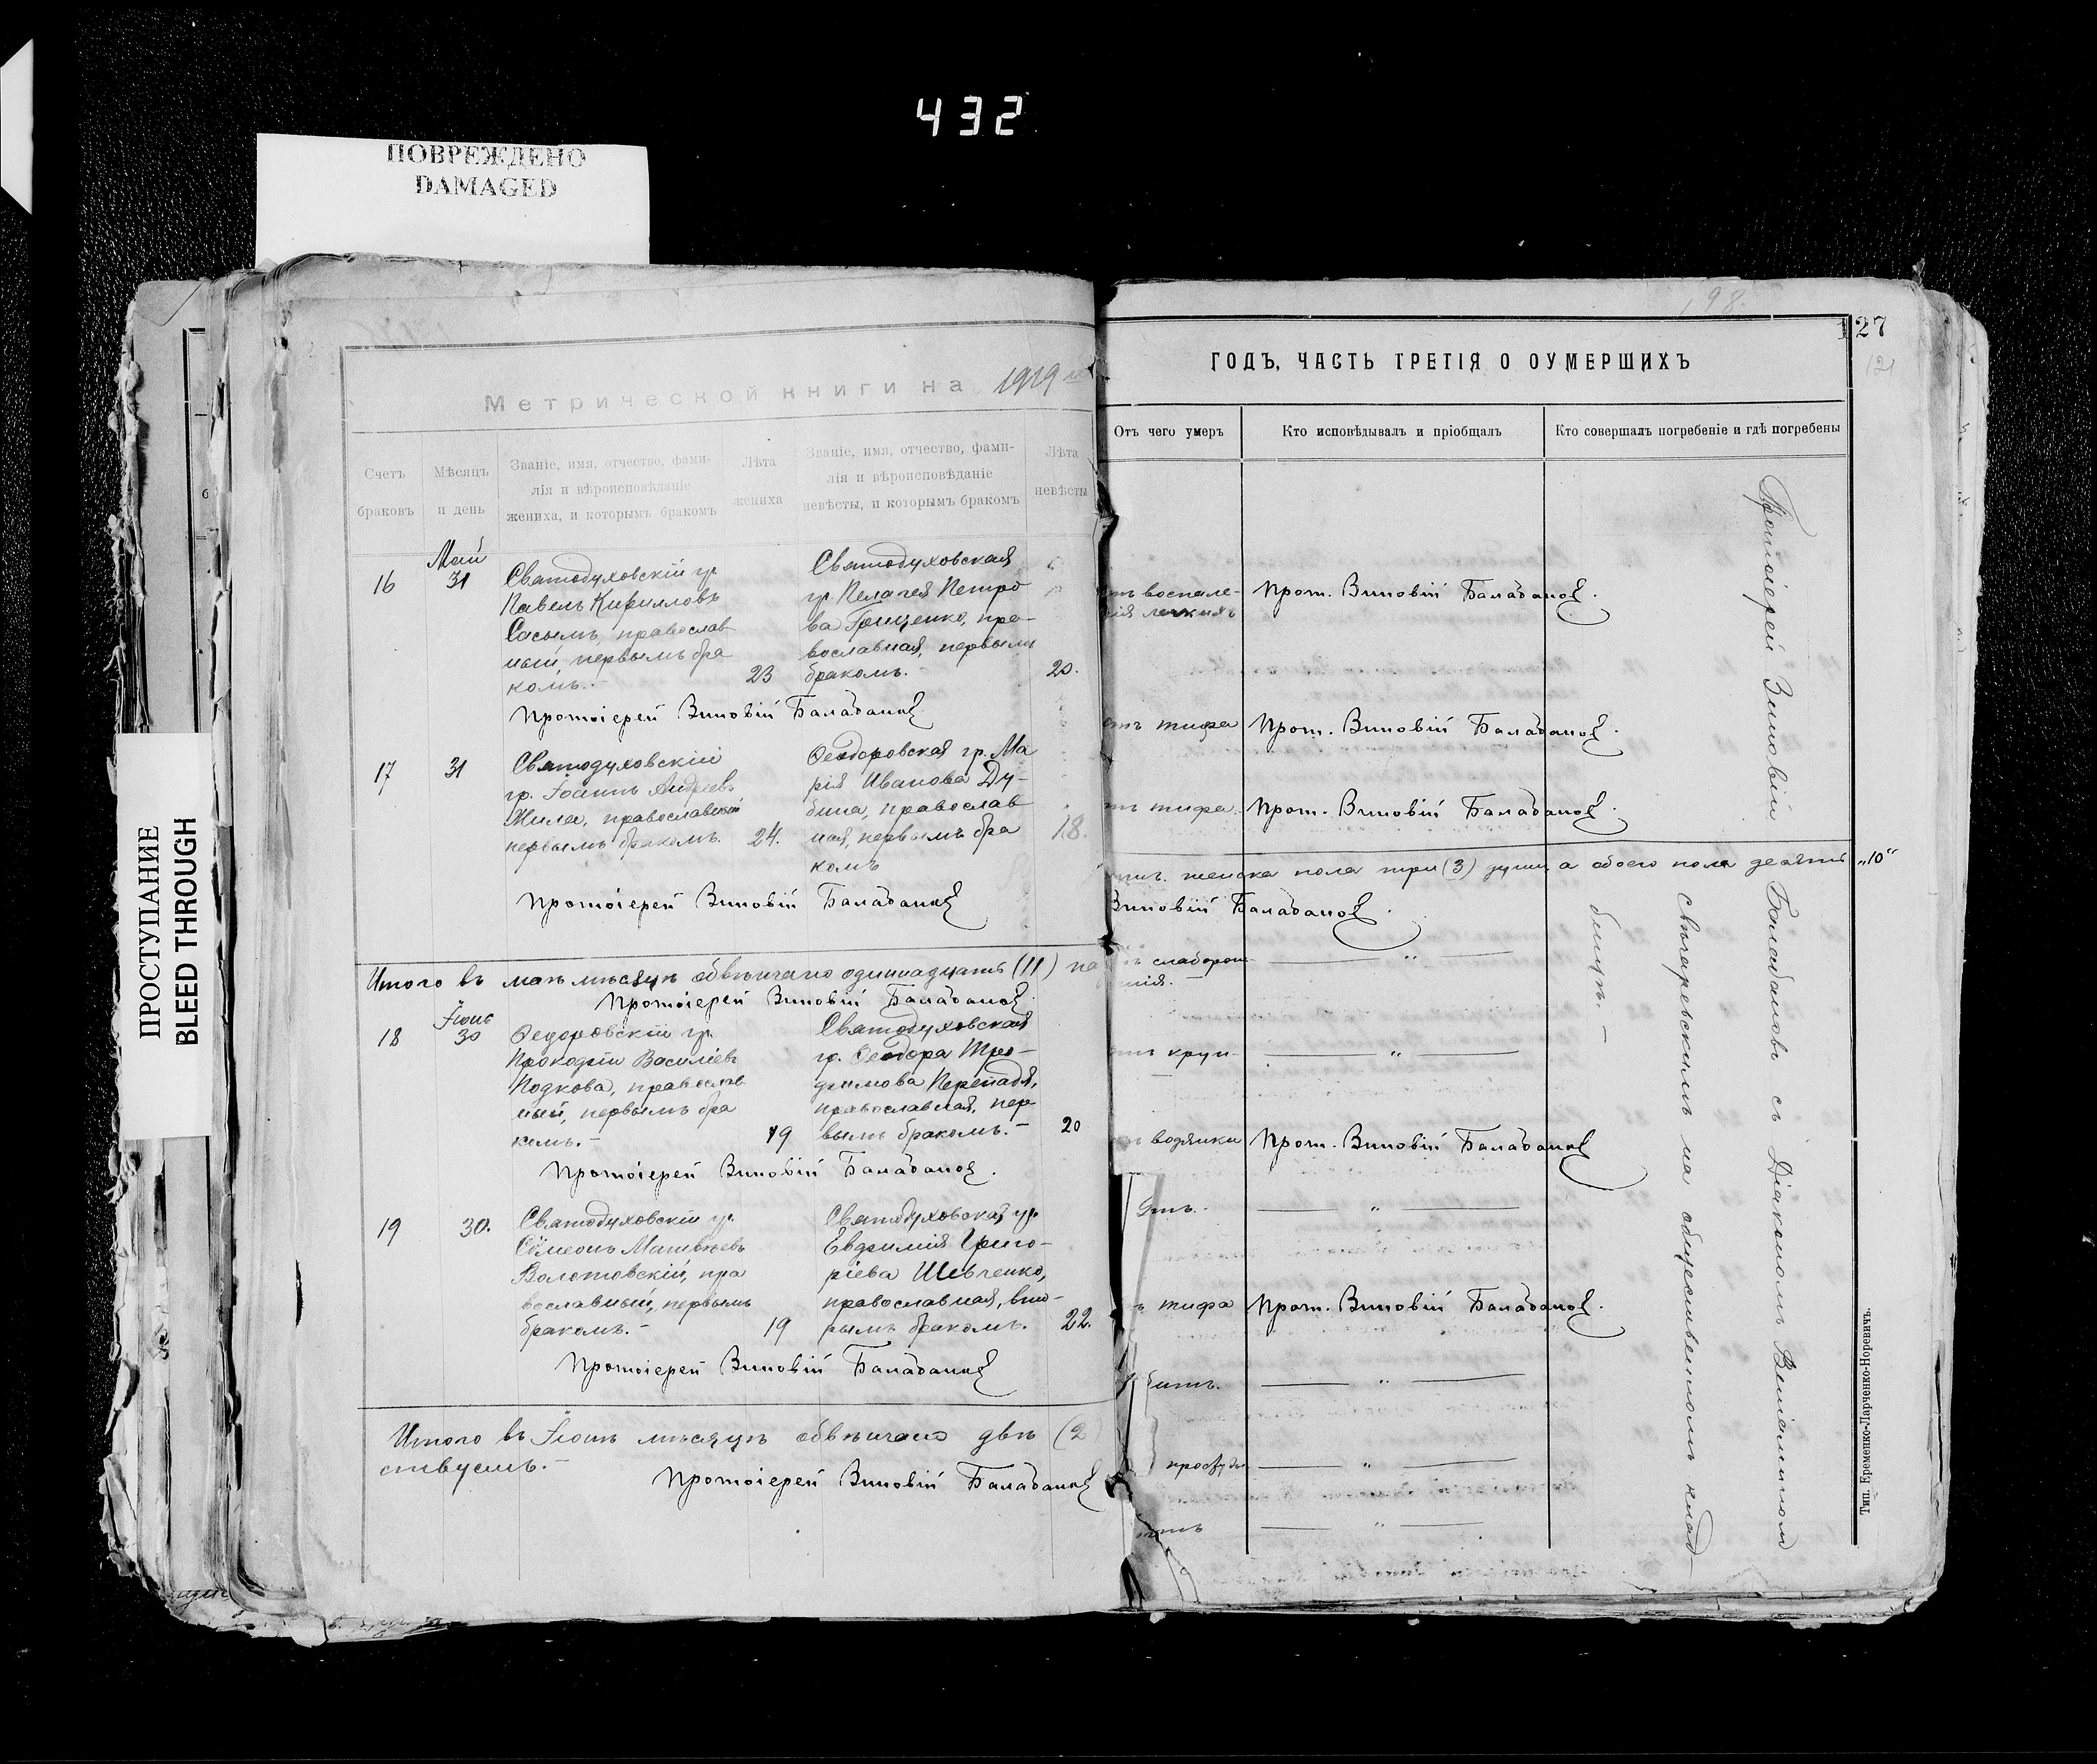 432
ПОВРЕЖДЕНО
DAMAGED
ПРОСТУПАНИЕ
BLEED THROUGH
Метрической книги на 1919
Счетъ браковъ
Мѣсяцъ и день
Званіе, имя, отчество, фами-
лія и вѣроисповѣданіе
жениха, и которымъ бракомъ
Лѣта жениха
Званіе, имя, отчество, фами-
лія и вѣроисповѣданіе
невѣсты, и которымъ бракомъ
Лѣта невѣсты
16
Май
31
Святодуховскій гр.
Павелъ Кирилловъ
православ
ный, первымъ бра
комъ.-
23
Святодуховская
гр. Пелагея Петро
ва Грищенко, пра-
вославная, первымъ
бракомъ.-
20.
Протоіерей Зиновій Балабановъ
17
31
Святодуховскій
гр. Іоаннъ Андреевъ
Мила, православный
первымъ бракомъ.
24.
Феодоровская гр. Ма
рія Иванова Ду-
бина, православ
ная, первымъ бра
комъ
18.
Протоіерей Зиновій Балабановъ
Итого въ маѣ мѣсяцѣ обвѣнчано одиннадцать (11) па
Протоіерей Зиновій Балабановъ
18
Іюнь
30
Федоровскій гр.
Прокофій Василіевъ
Подкова, православ
ный, первымъ бра
комъ.-
19
Святодуховская
гр. Феодора Тро-
фимова Перепадя,
православная, пер
вымъ бракомъ.-
20
Протоіерей Зиновій Балабановъ.
19
30.
Святодуховскій гр.
Сѵмеонъ Матвѣевъ
Золотовскій, пра
вославный, первымъ
бракомъ.-
19
Святодуховская гр.
Евфимія Григо-
ріева Шевченко,
православная, вто-
рымъ бракомъ.
22.
Протоіерей Зиновій Балабановъ
Итого въ Іюнѣ мѣсяцѣ обвѣнчано двѣ (2)
ствуемъ.-
Протоіерей Зиновій Балабановъ
198.
127
121
ГОДЪ, ЧАСТЬ ТРЕТІЯ О ОУМЕРШИХЪ
Отъ чего умеръ
Кто исповѣдывалъ и пріобщалъ
Кто совершалъ погребеніе и гдѣ погребены
отъ воспале-
нія легкихъ
Прот. Зиновій Балабановъ.
отъ тифа
Прот. Зиновій Балабановъ.
отъ тифа
Прот. Зиновій Балабановъ.
женска пола три (3) души, а обоего пола десять „10“
Зиновій Балабановъ.
слаборож
нія.-
— „ —
отъ круп-
— „ —
водянки
Прот. Зиновій Балабановъ
— „ —
тифа
Прот. Зиновій Балабановъ.
— „ —
простуды
— „ —
— „ —
Протоіерей Зиновій Балабановъ съ Діакономъ Веніаминомъ
на общественномъ клад-
бищѣ.-
Тип. Еременко-Ларченко-Норевичъ.